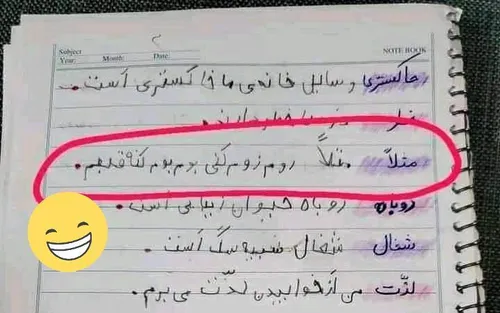 ۲
Subject Year: Month: Date: NOTE BOOK
خاکستری وسایل خانه‌ی ما خاکستری است.
مثلاً مثلاً روم زوم کنی بوم بوم کنه قلبم.
روباه روباه حیوان زیبایی است.
شغال شغال شبیه سگ است.
لذّت من از خوابیدن لذّت می برم.